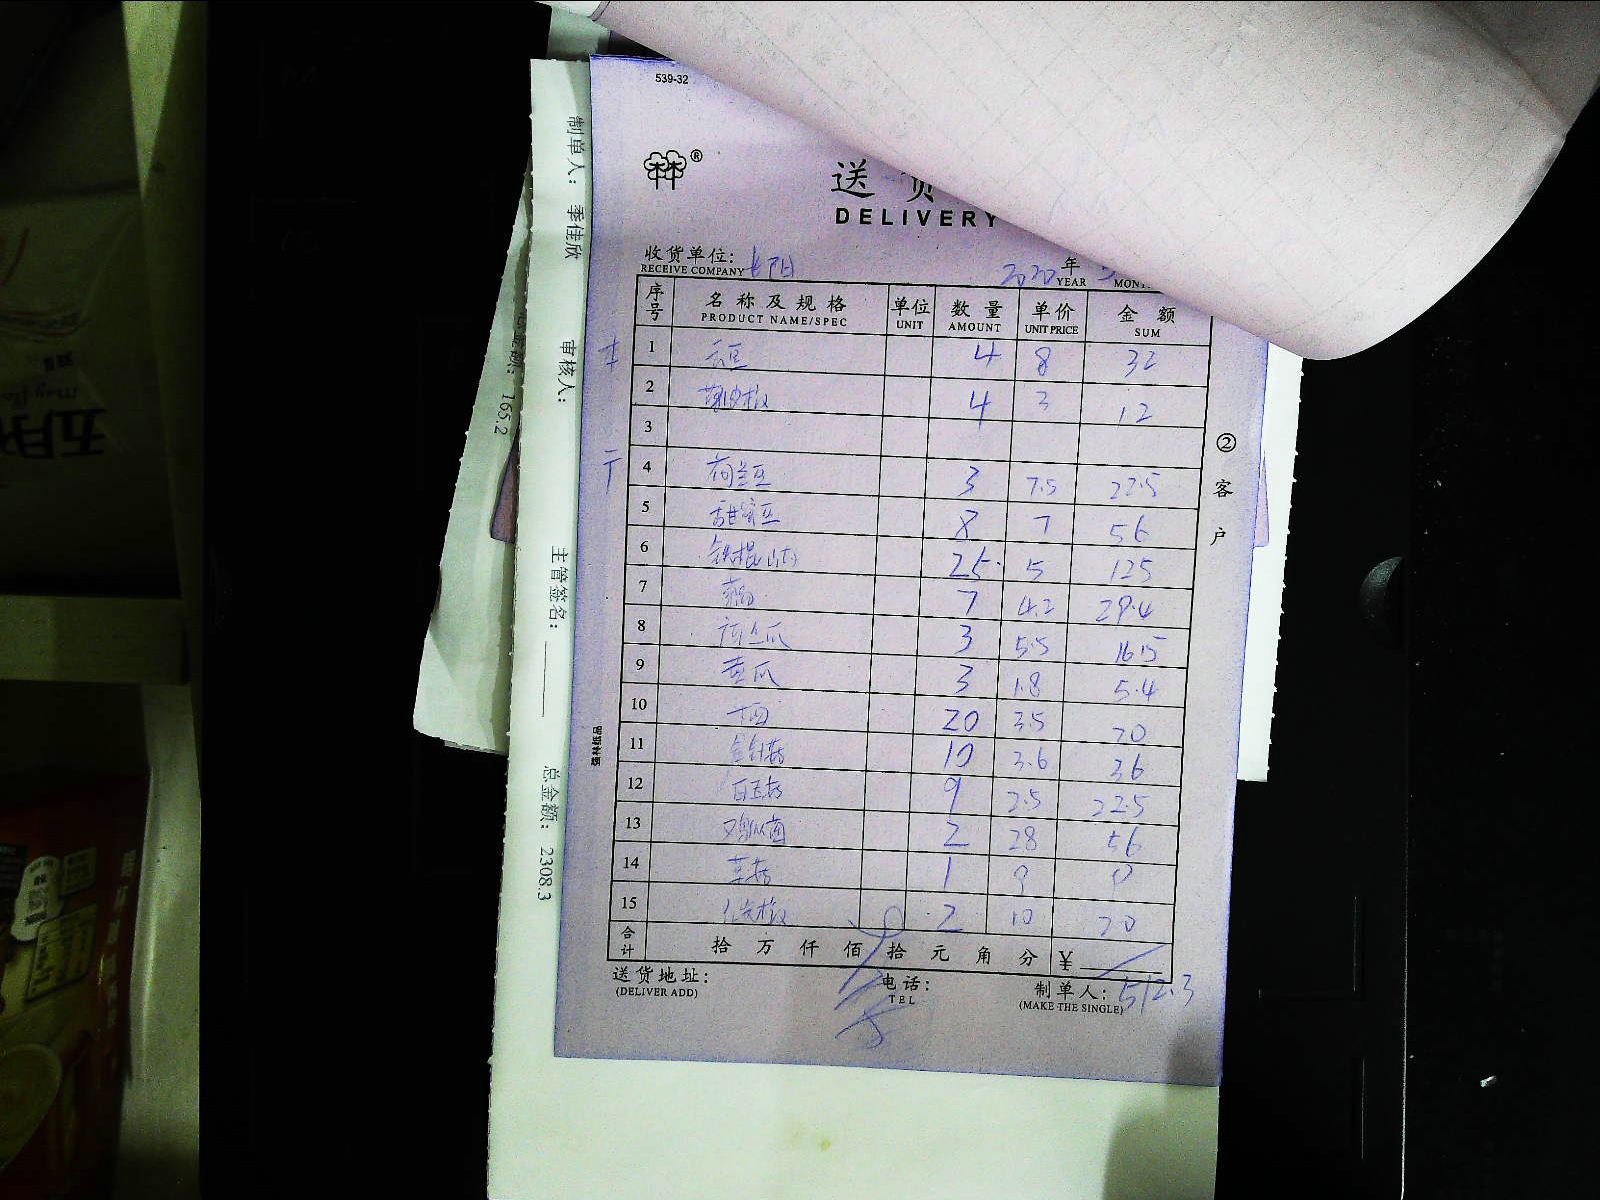 539-32
®
送 货
DELIVERY
收货单位:
RECEIVE COMPANY
2020 年
YEAR
序号 名称及规格 单位 数量 单价 金额
PRODUCT NAME/SPEC UNIT AMOUNT UNIT PRICE SUM
1 云豆 4 8 32
2 薄皮椒 4 3 12
3
4 荷兰豆 3 7.5 22.5
5 甜蜜豆 8 7 56
6 铁棍山药 25 5 125
7 7 4.2 29.4
8 3 5.5 16.5
9 黄瓜 3 1.8 5.4
10 20 3.5 70
11 金针菇 10 3.6 36
12 白玉菇 9 2.5 22.5
13 鸡枞菌 2 28 56
14 草菇 1 9 9
15 2 10 20
合计 拾 万 仟 佰 拾 元 角 分 ¥
512.3
送货地址:
(DELIVER ADD)
电话:
TEL
制单人:
(MAKE THE SINGLE)
②客户
强林纸品
制单人: 季佳欣
审核人:
主管签名:
总金额: 2308.3
165.2